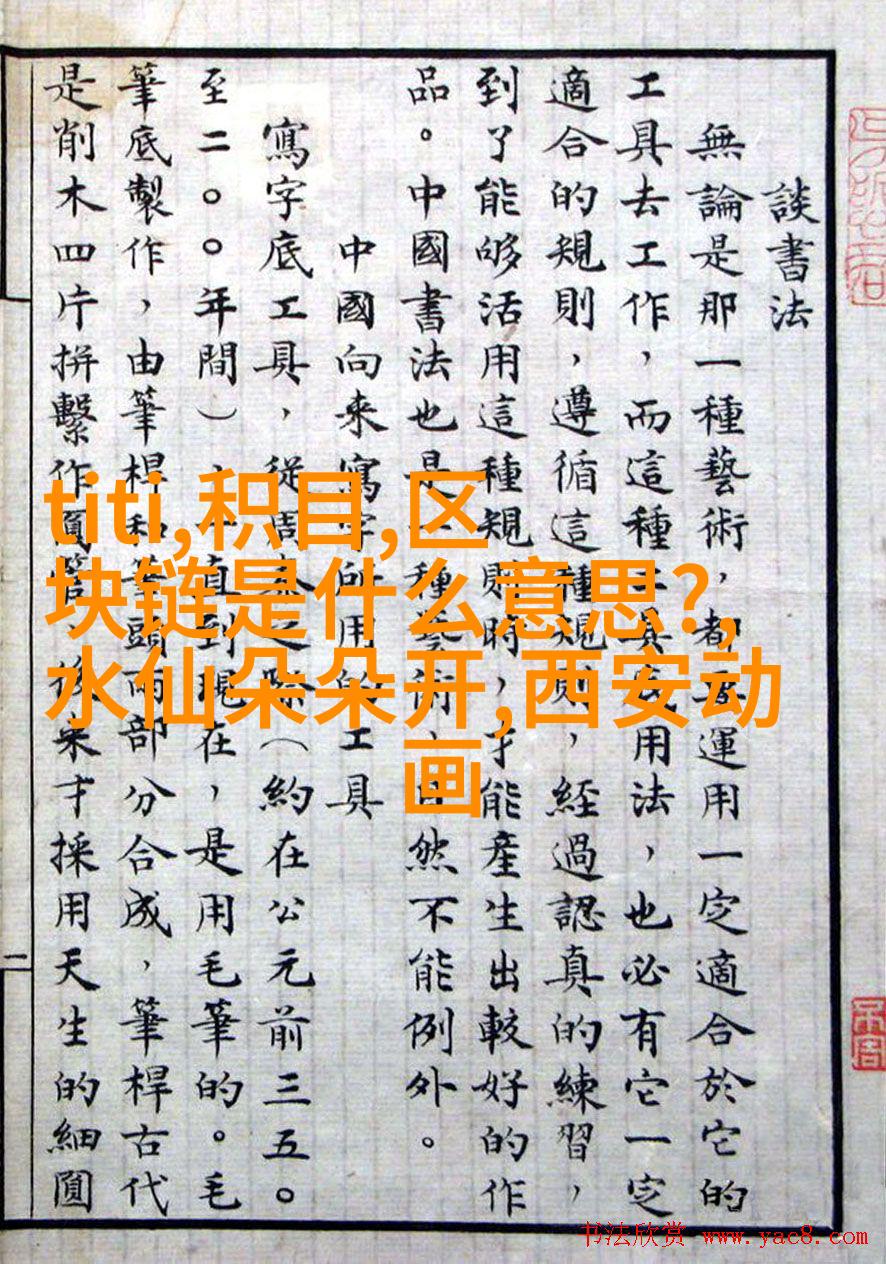 談書法
無論是那一種藝術，都要運用一定適合於它的
工具去工作，而這種工具底用法，也必有它一定
適合的規則，遵循這種規則，經過認真的練習，
到了能够活用這種規則時，才能產生出較好的作
品。中國書法也是一種藝術，自然不能例外。
中國向來寫字所用的工具
寫字底工具，從周之際（約在公元前三五〇
至二〇〇年間），一直到現在，是用毛筆的。毛
筆底製作，由筆桿和筆頭兩部分合成，筆桿古代
是削木四片拼繫作圓管，後來才採用天生的細圓
二
titi,积目,区
块链是什么意思?,
水仙朵朵开,西安动
画
书法欣赏 www.yac8.com